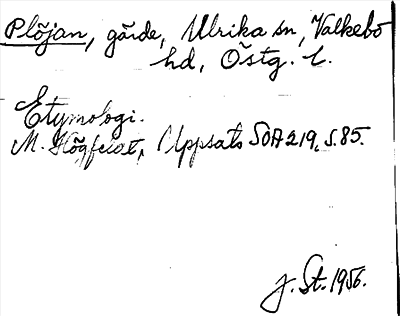 Plöjan, gärde, Ulrika sn, Valkebo
hd, Östg. l.
Etymologi.
M. Högfeldt, Uppsats SOA 219, s. 85.
J. St. 1956.